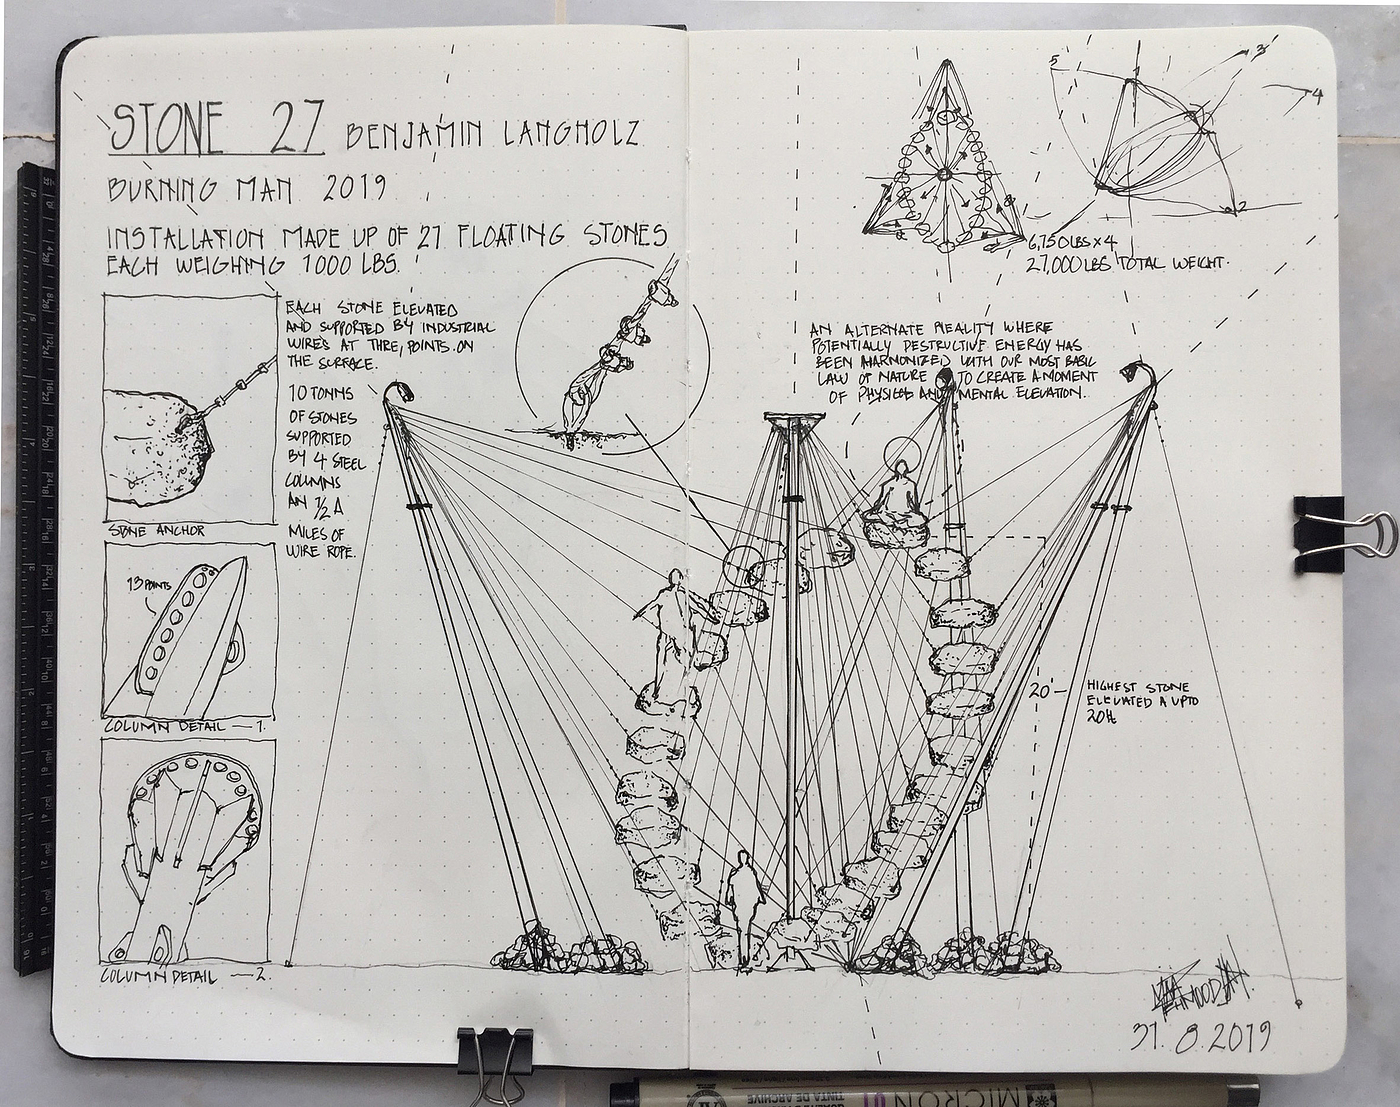 STONE 27 BENJAMIN LANGHOLZ
BURNING MAN 2019
INSTALLATION MADE UP OF 27 FLOATING STONES
EACH WEIGHING 1000 LBS.
EACH STONE ELEVATED
AND SUPPORTED BY INDUSTRIAL
WIRES AT THRE, POINTS ON
THE SURFACE.
10 TONNS
OF STONES
SUPPORTED
BY 4 STEEL
COLUMNS
AN 1/2 A
MILES OF
WIRE ROPE.
STONE ANCHOR
13 POINTS
COLUMN DETAIL — 1.
COLUMN DETAIL — 2.
1
2
3
4
5
6,750LBS X 4
27,000LBS TOTAL WEIGHT.
AN ALTERNATE REALITY WHERE
POTENTIALLY DESTRUCTIVE ENERGY HAS
BEEN HARMONIZED WITH OUR MOST BASIC
LAW OF NATURE TO CREATE A MOMENT
OF PHYSICAL AND MENTAL ELEVATION.
20'
HIGHEST STONE
ELEVATED A UPTO
20ft
31. 8. 2019
MICRON
TINTA DE ARCHIVE